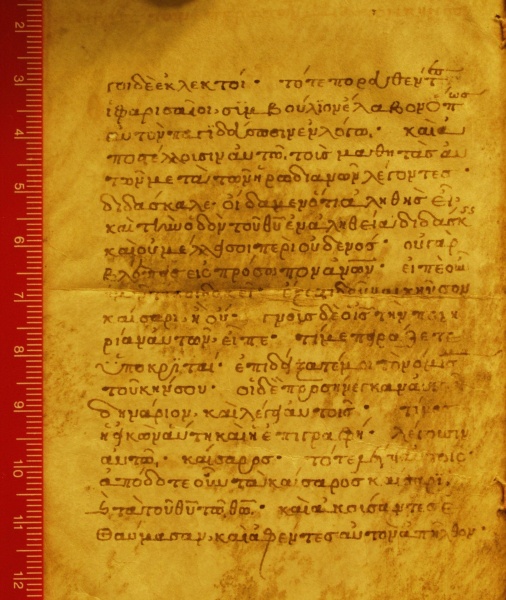 γοι δὲ ἐκλεκτοί· τότε πορευθέντες
οἱ φαρισαῖοι, συμβούλιον ἔλαβον ὅπως
αὐτὸν παγιδεύσωσιν ἐν λόγω, καὶ ἀ
ποστέλλουσιν αὐτῶ τοὺς μαθητὰς αὐ
τῶν μετὰ τῶν ἡρωδιανῶν λέγοντες·
διδάσκαλε, οἴδαμεν ὅτι ἀληθὴς εἶ,
καὶ τὴν ὁδὸν τοῦ θυ ἐν ἀληθεία διδάσκεις
καὶ οὐ μέλει σοι περὶ οὐδενός· οὐ γὰρ
βλέπεις εἰς πρόσωπον ανων· εἰπὲ οὖν
δοκεῖ ἔξεστι δοῦναι κῆνσον
καίσαρι, ἢ οὔ· γνοὺς δὲ ὁ ις τὴν πονη
ρίαν αὐτῶν, εἶπε· τί με πειράζετε
ὑποκριταί· ἐπιδείξατέ μοι τὸ νόμισμα
τοῦ κήνσου· οἱ δὲ προσήνεγκαν αὐτῶ
δηνάριον, καὶ λέγει αὐτοῖς· τίνος
ἡ εἰκὼν αὕτη καὶ ἡ ἐπιγραφή· λέγουσιν
αὐτῶ, καίσαρος· τότε λέγει αὐτοῖς
ἀπόδοτε οὖν τὰ καίσαρος καίσαρι,
καὶ τὰ τοῦ θυ τῶ θω· καὶ ἀκούσαντες ἐ
θαύμασαν, καὶ ἀφέντες αὐτὸν ἀπῆλθον·
2
3
4
5
6
7
8
9
10
11
12